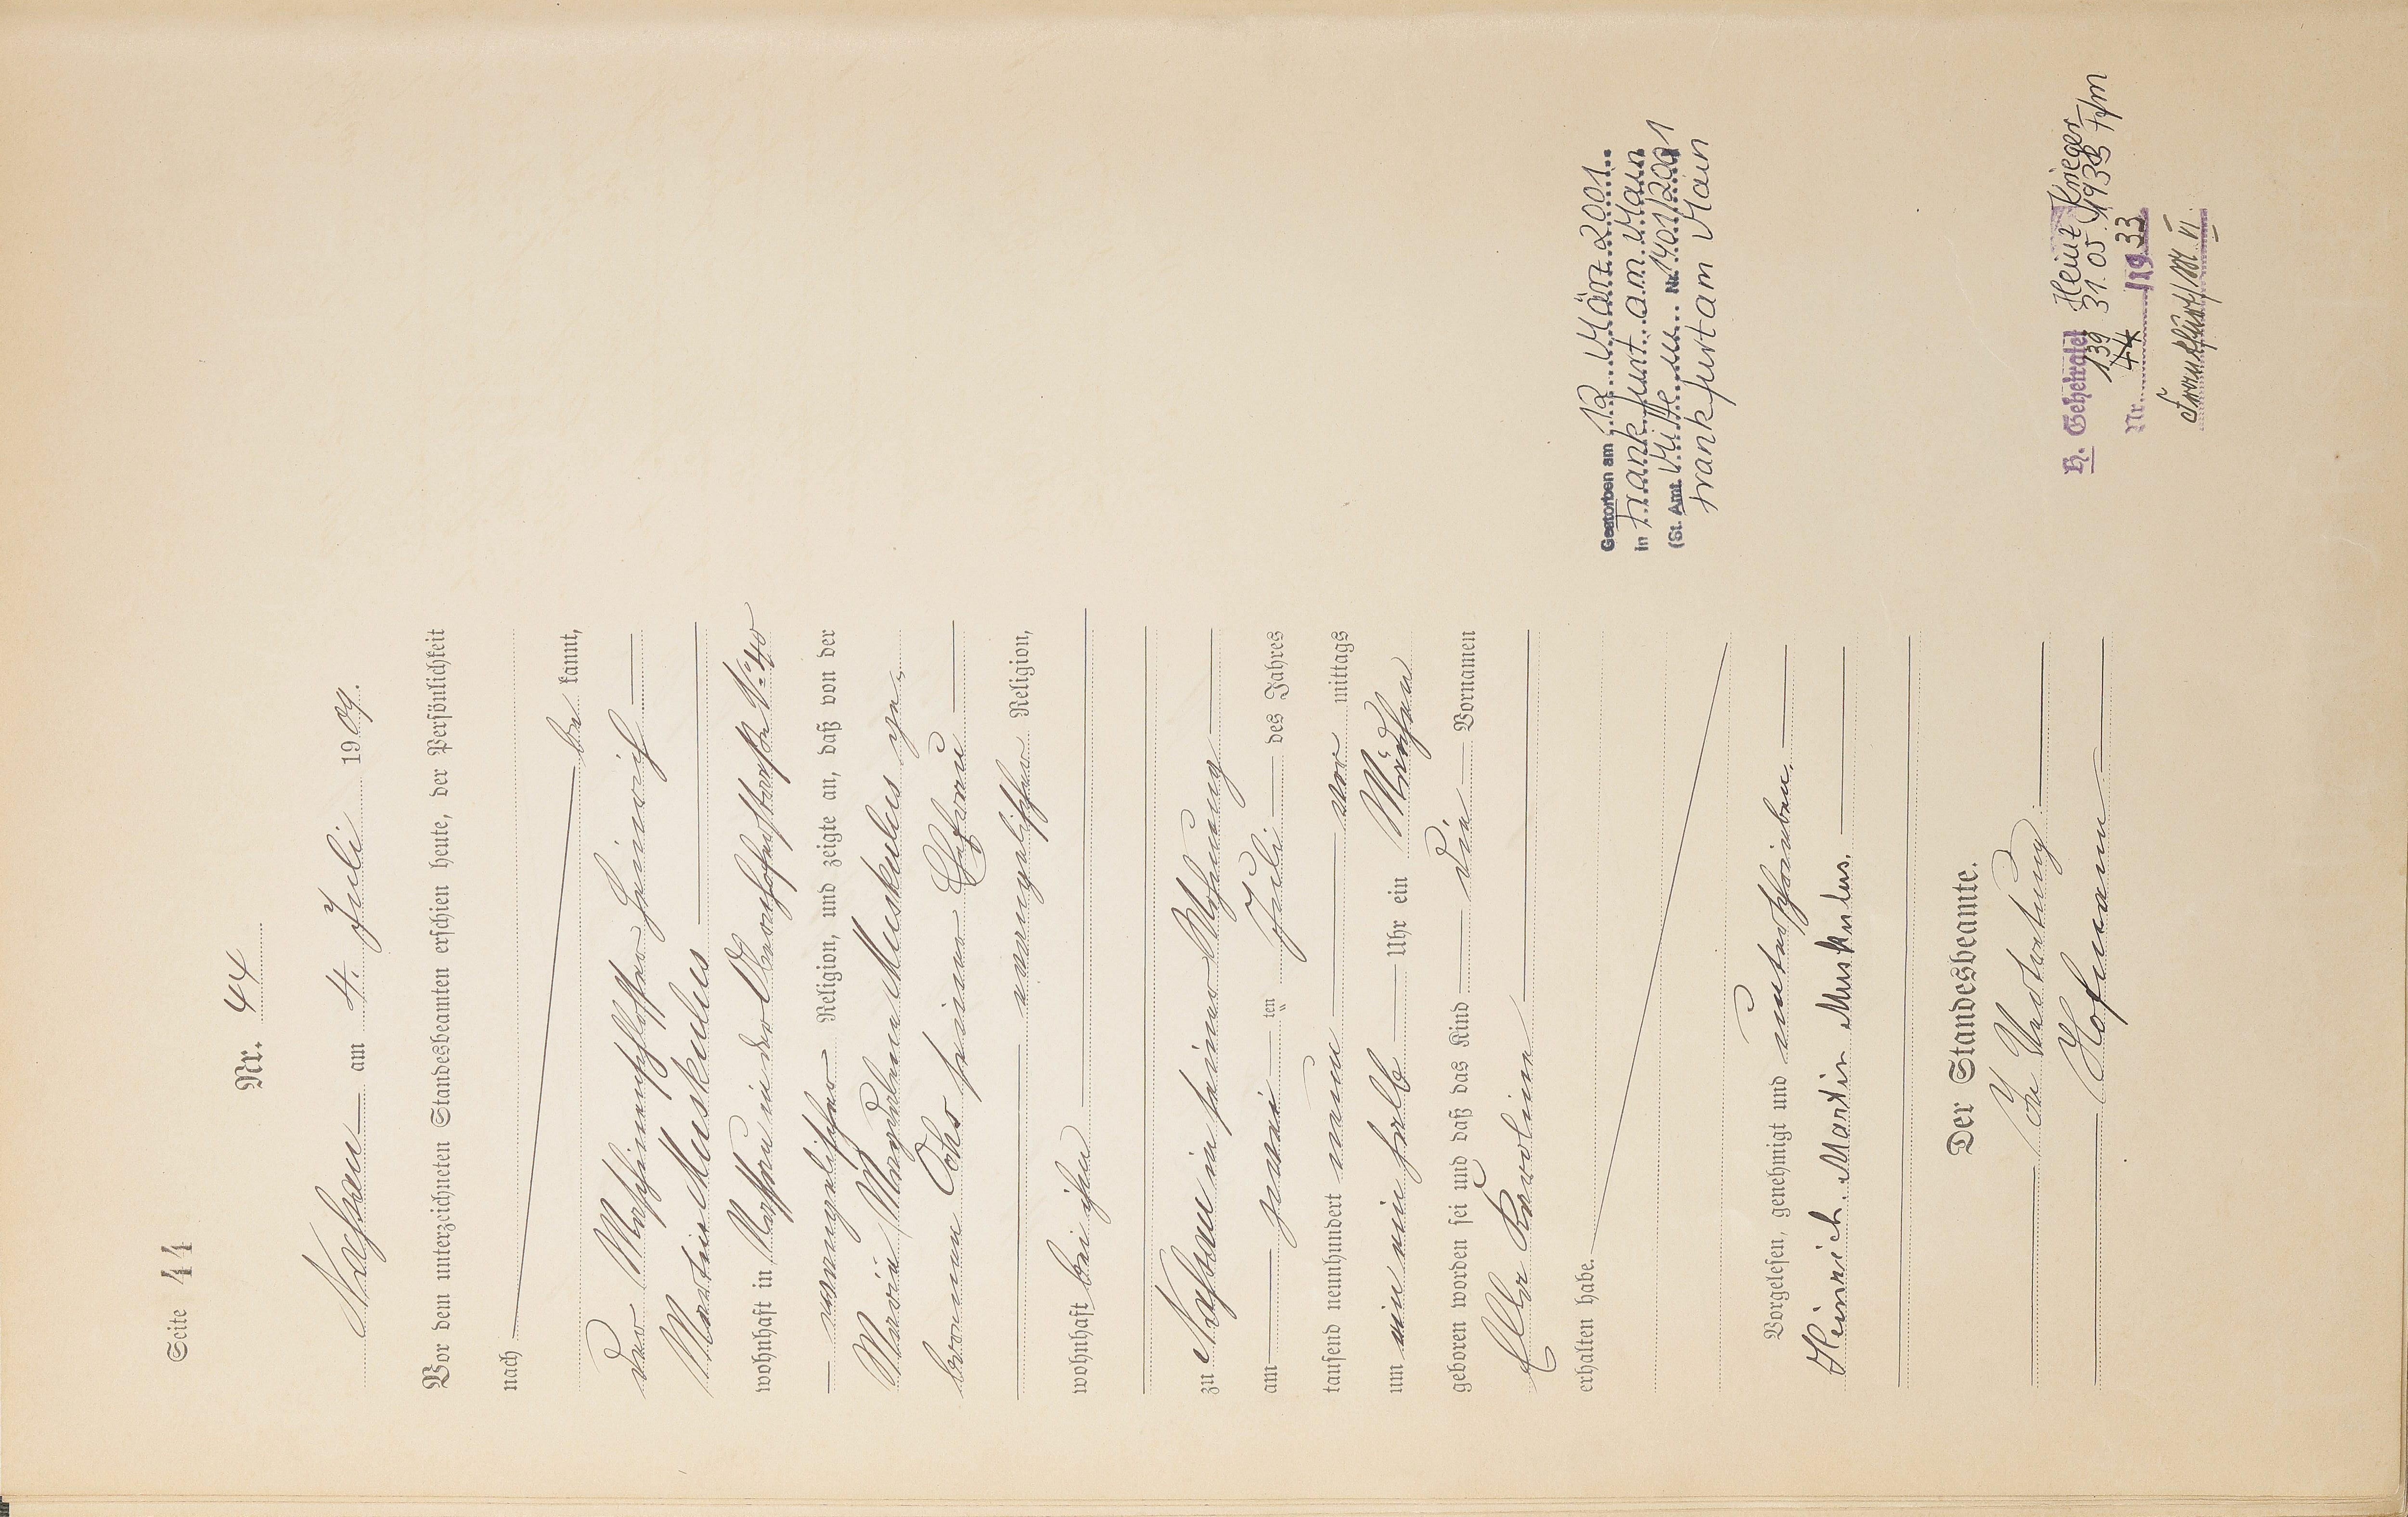 Seite 44
Nr. 44
Nassau am 4. Juli 1909.
Vor dem unterzeichneten Standesbeamten erschien heute, der Persönlichkeit
nach
be kannt,
der Maschinenschlosser Heinrich
Martin Muskulus
wohnhaft in Nassau in der Obernhoferstraße No 40
evangelischer Religion, und zeigte an, daß von der
Maria Magdalena Muskulus ge-
borenen seiner Ehefrau
evangelischer Religion,
wohnhaft bei ihm
zu Nassau in seiner Wohnung
am zwei ten Juli des Jahres
tausend neunhundert neun vor mittags
um ein ein halb Uhr ein Mädchen
geboren worden sei und daß das Kind die Vornamen
Ella Karolina
erhalten habe.
Vorgelesen, genehmigt und unterschrieben.
Heinrich Martin Muskulus.
Der Standesbeamte.
In Vertretung
Hofmann
Gestorben am 12. März 2001
in Frankfurt am Main
(St. Amt. Mitte in Nr. 1401/2001
Frankfurt am Main
H. Geheiratet Heinz Krieger
31.05.1933 Ffm
139
Nr. 44 / 1933
Frankfurt/M VI.